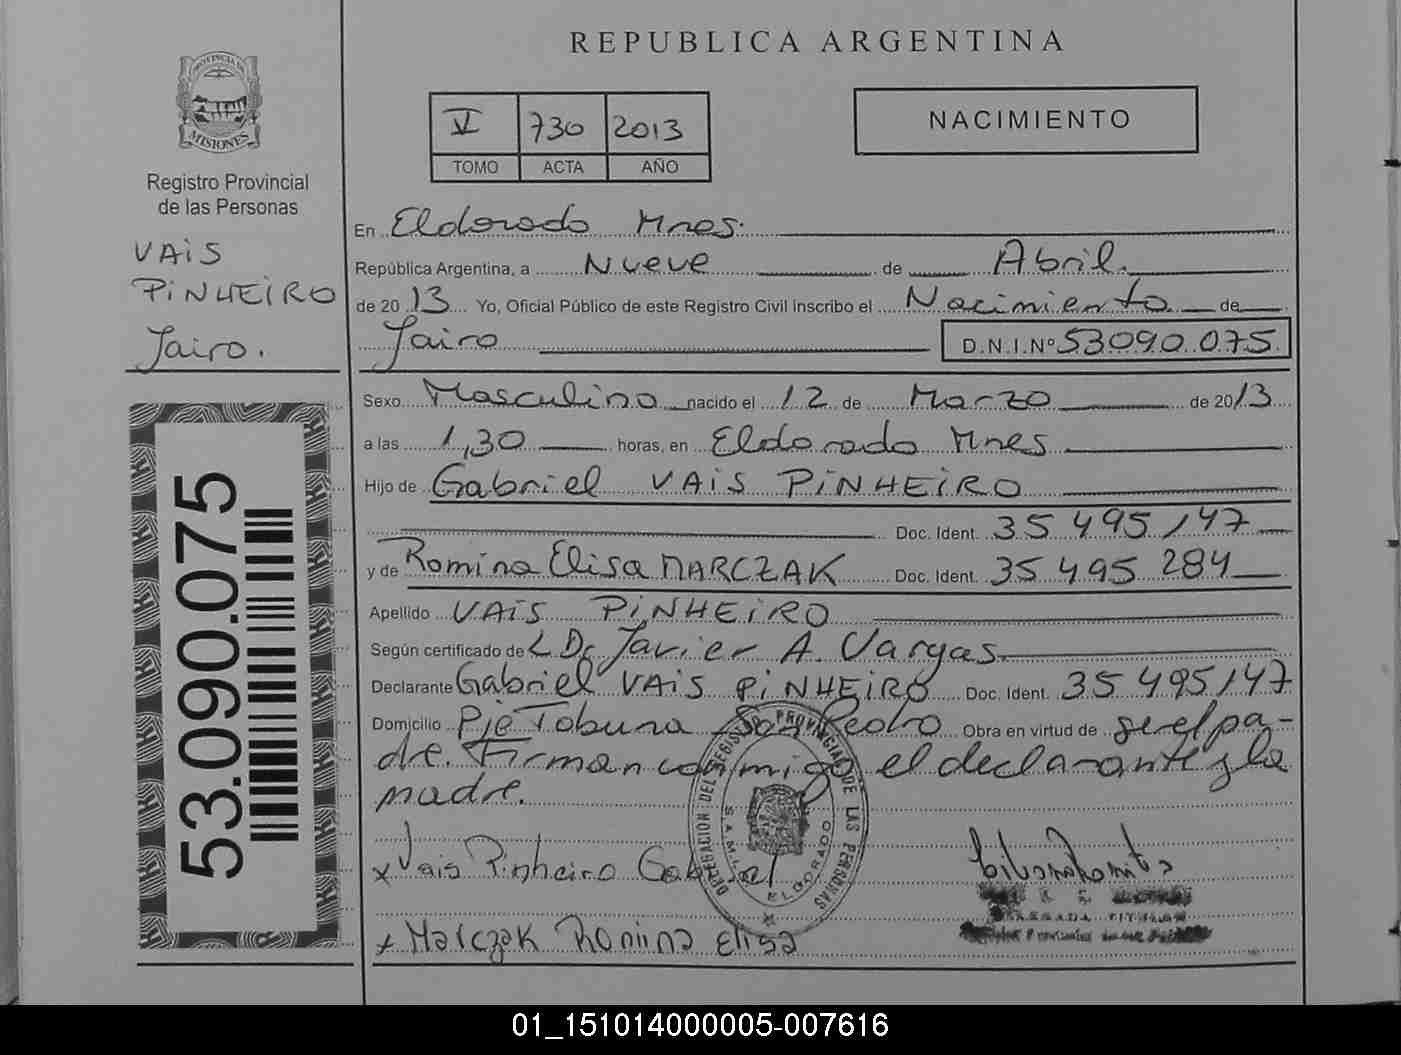 REPUBLICA ARGENTINA
V 730 2013
TOMO ACTA AÑO
NACIMIENTO
PROVINCIA DE
MISIONES
Registro Provincial
de las Personas
VAiS
PiNHEiRO
Jairo.
53.090.075
En Eldorado Mnes.
República Argentina, a Nueve de Abril.
de 2013 Yo, Oficial Público de este Registro Civil inscribo el Nacimiento de
Jairo D.N.I.Nº 53090.075
Sexo Masculino nacido el 12 de Marzo de 2013
a las 1,30 horas, en Eldorado Mnes
Hijo de Gabriel VAiS PiNHEiRO
Doc. Ident. 35 495147
y de Romina Elisa MARCZAK Doc. Ident. 35 495 284
Apellido VAiS PiNHEiRO
Según certificado de Dr Javier A. Vargas.
Declarante Gabriel VAiS PiNHEiRO Doc. Ident. 35 495147
Domicilio Pje Tobuna San Pedro Obra en virtud de ser el pa-
dre. Firman conmigo el declarante y la
madre.
DELEGACION DEL REGISTRO PROVINCIAL DE LAS PERSONAS
ELDORADO
x Vais Pinheiro Gabriel
DELEGADA TITULAR
x Marczak Romina Elisa
01_151014000005-007616